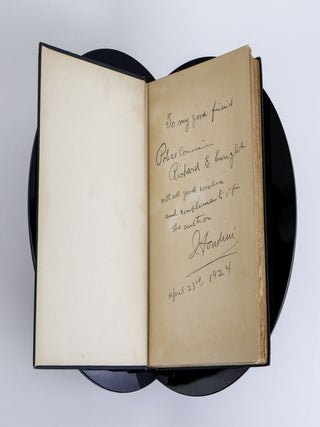 To my good friend
Police Commissioner
Richard E Enright
with all good wishes
and compliments of
the author
Houdini
april 23rd 1924